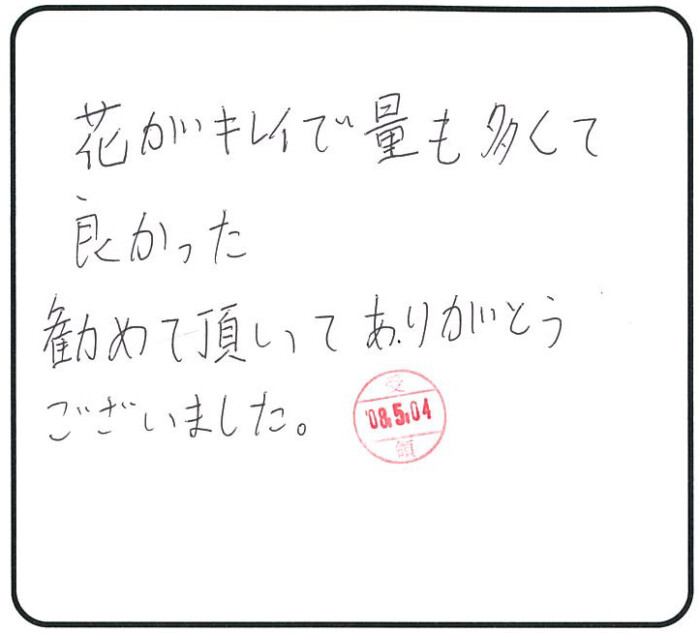 花がキレイで量も多くて
良かった
勧めて頂いてありがとう
ございました。
受
'08.5.04
領